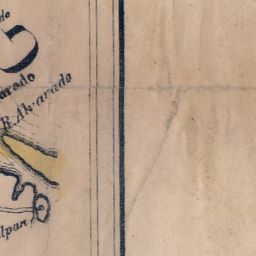 do
arado
R. Alvarado
lpan